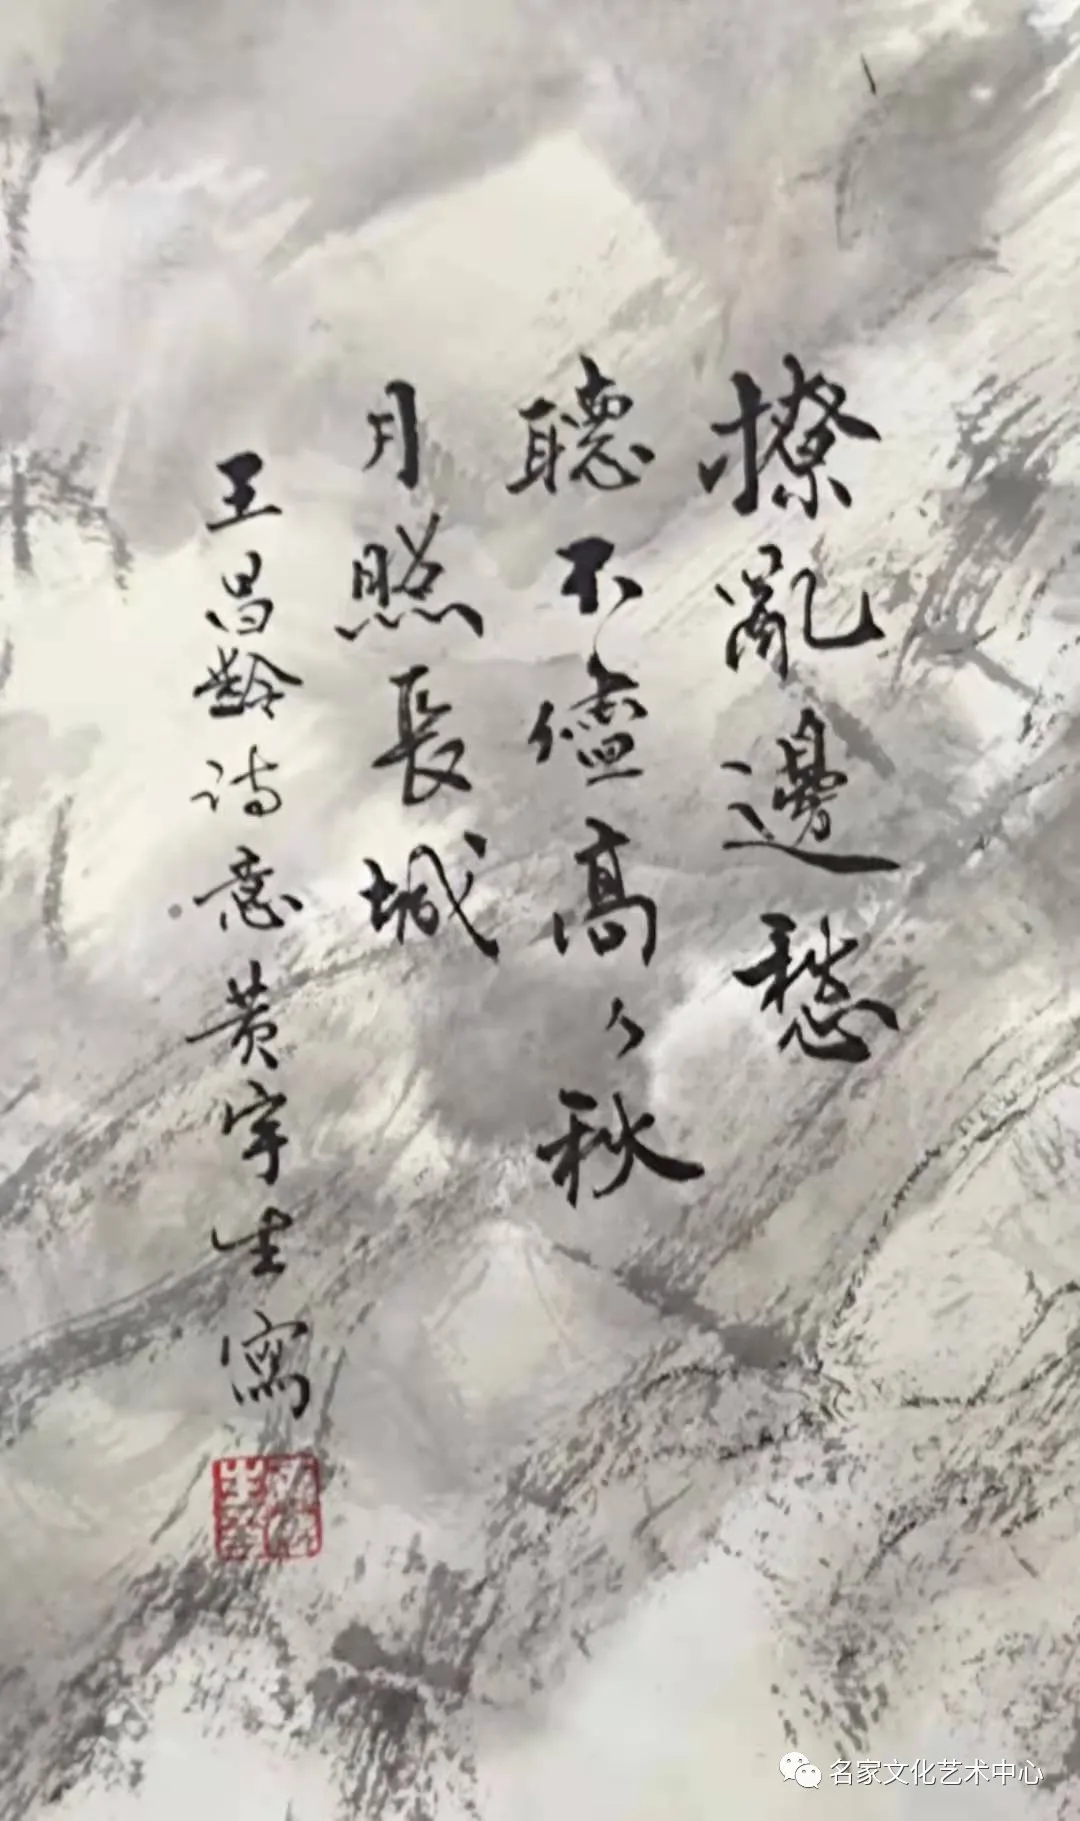 撩亂邊愁
聽不儘高々秋
月照長城
王昌齡诗意黄宇生寫
名家文化艺术中心